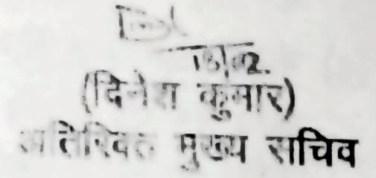 (दिनेश कुमार)
अतिरिक्त मुख्य सचिव